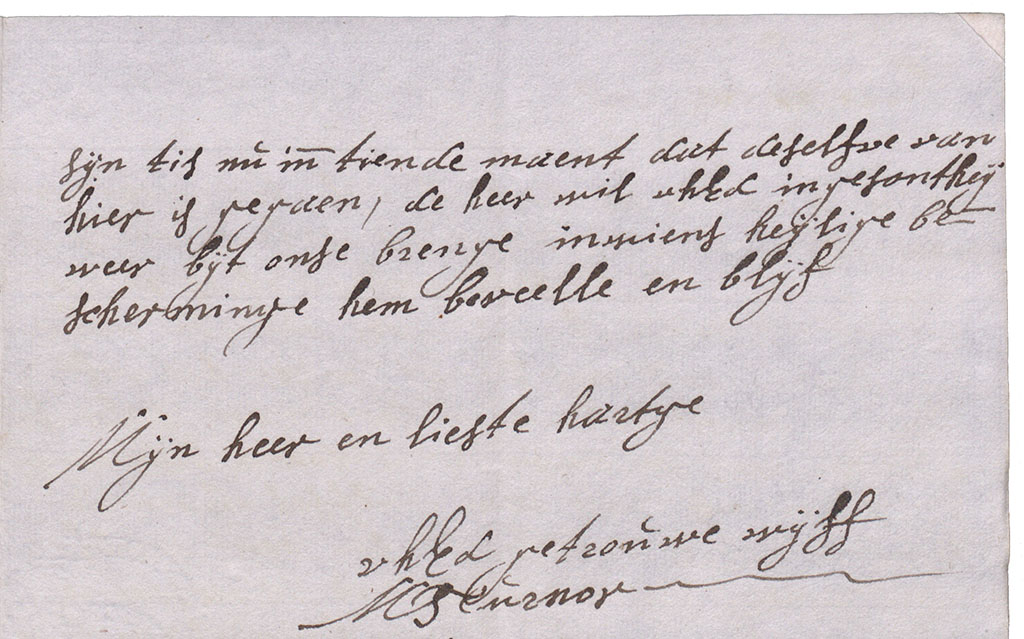 sijn tis nu in tiende maent dat deselfve van
hier is gegaen, de heer wil uhEd in gesonthey
weer bijt onse brenge in wiens heijlige be
scherminge hem beveelle en blijf
Mijn heer en lieste hartge
uhEd getrouwe wijff